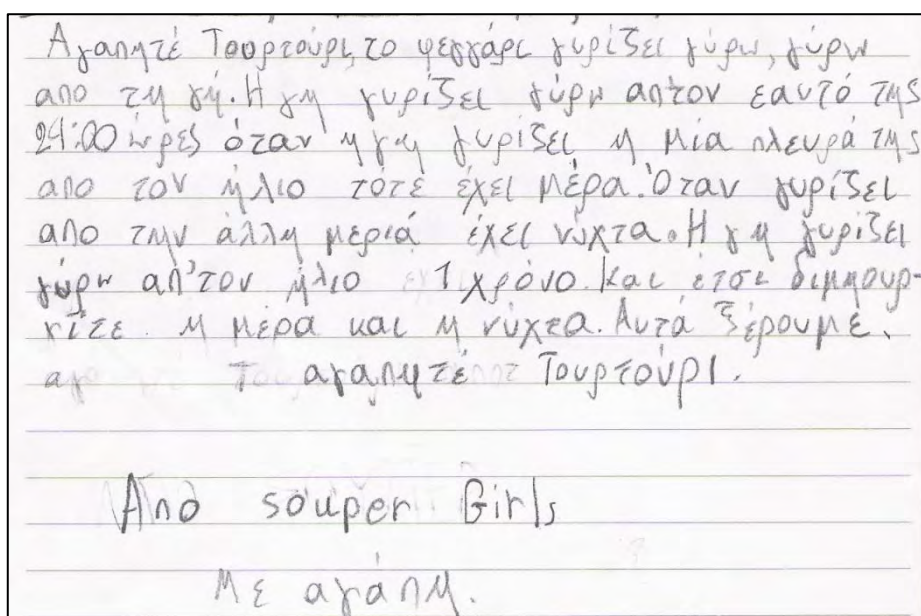 Αγαπητέ Τουρτούρι, το φεγγάρι γυρίζει γύρω, γύρω
απο τη γή. Η γη γυρίζει γύρω απτον εαυτό της
24:00 ώρες όταν η γη γυρίζει η μία πλευρά της
απο τον ήλιο τότε έχει μέρα. Όταν γυρίζει
απο την άλλη μεριά έχει νύχτα. Η γη γυρίζει
γύρω απ'τον ήλιο 1 χρόνο. Και έτσι διμηουρ-
κίτε η μέρα και η νύχτα. Αυτά ξέρουμε.
αγαπητέ Τουρτούρι.
Από souper Girls
Με αγάπη.